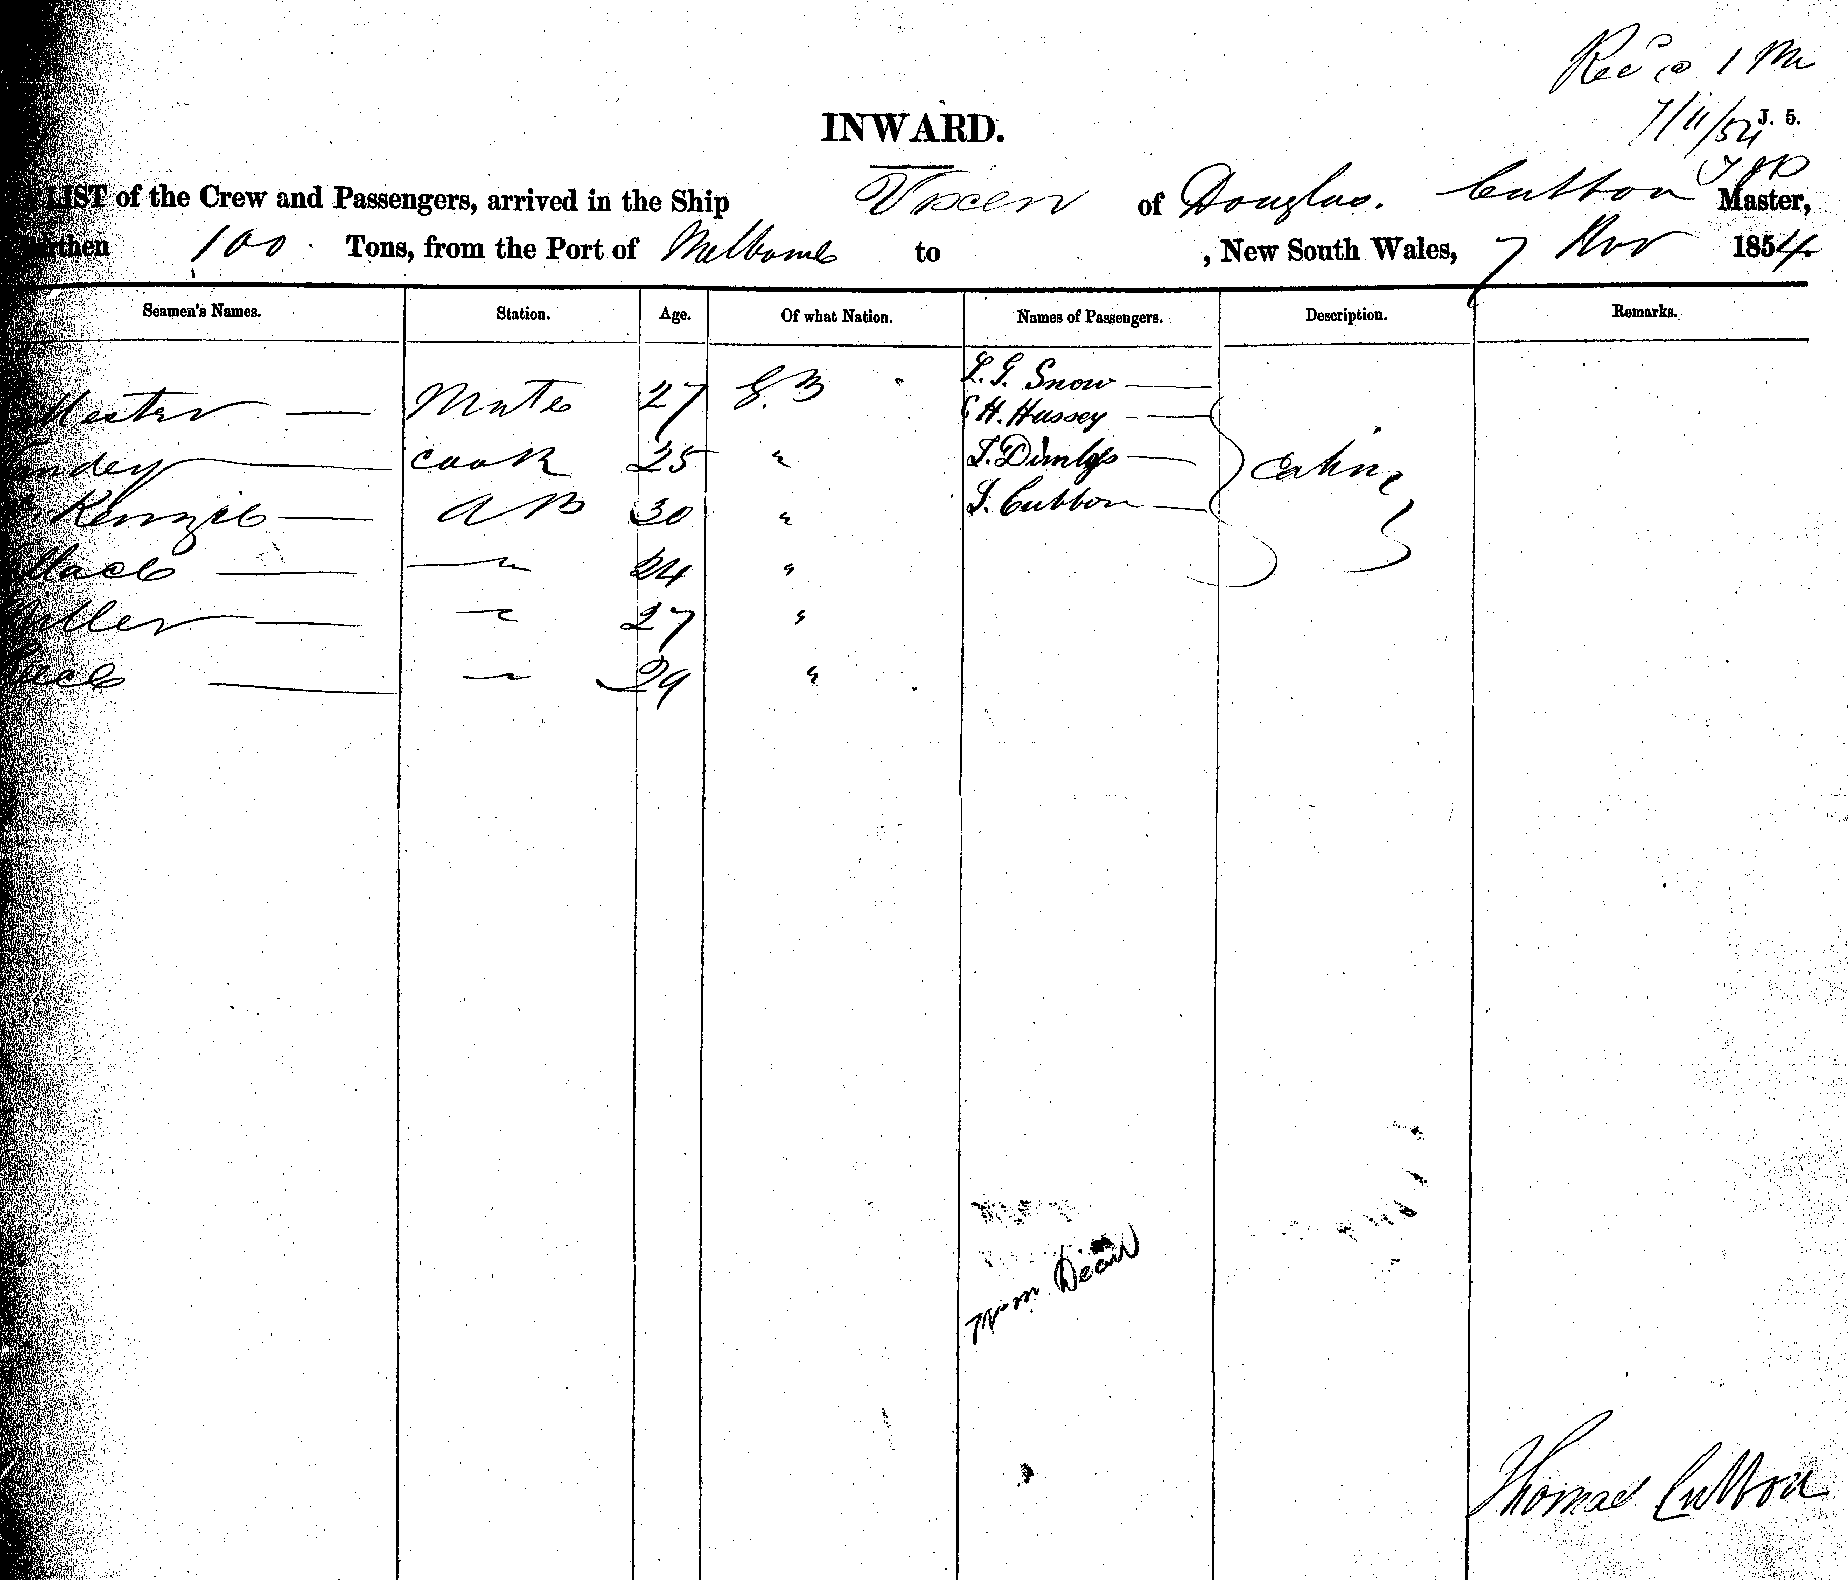 Rec'd @ 1 PM
7/11/54 J. 5.
INWARD.
LIST of the Crew and Passengers, arrived in the Ship Vixen of Douglas. Cubbon Master,
Burthen 100 Tons, from the Port of Melbourne to , New South Wales, 7 Nov 1854.
Seamen's Names. Station. Age. Of what Nation. Names of Passengers. Description. Remarks.
L. G. Snow —
Mate 27 G.B
H. Hussey —
cook 25 " T. Dunlop — Cabin
Kenzie — A B 30 " T. Cubbon —
— " 24 "
" 27 "
" 29 "
Wm Dean
Thomas Cubbon